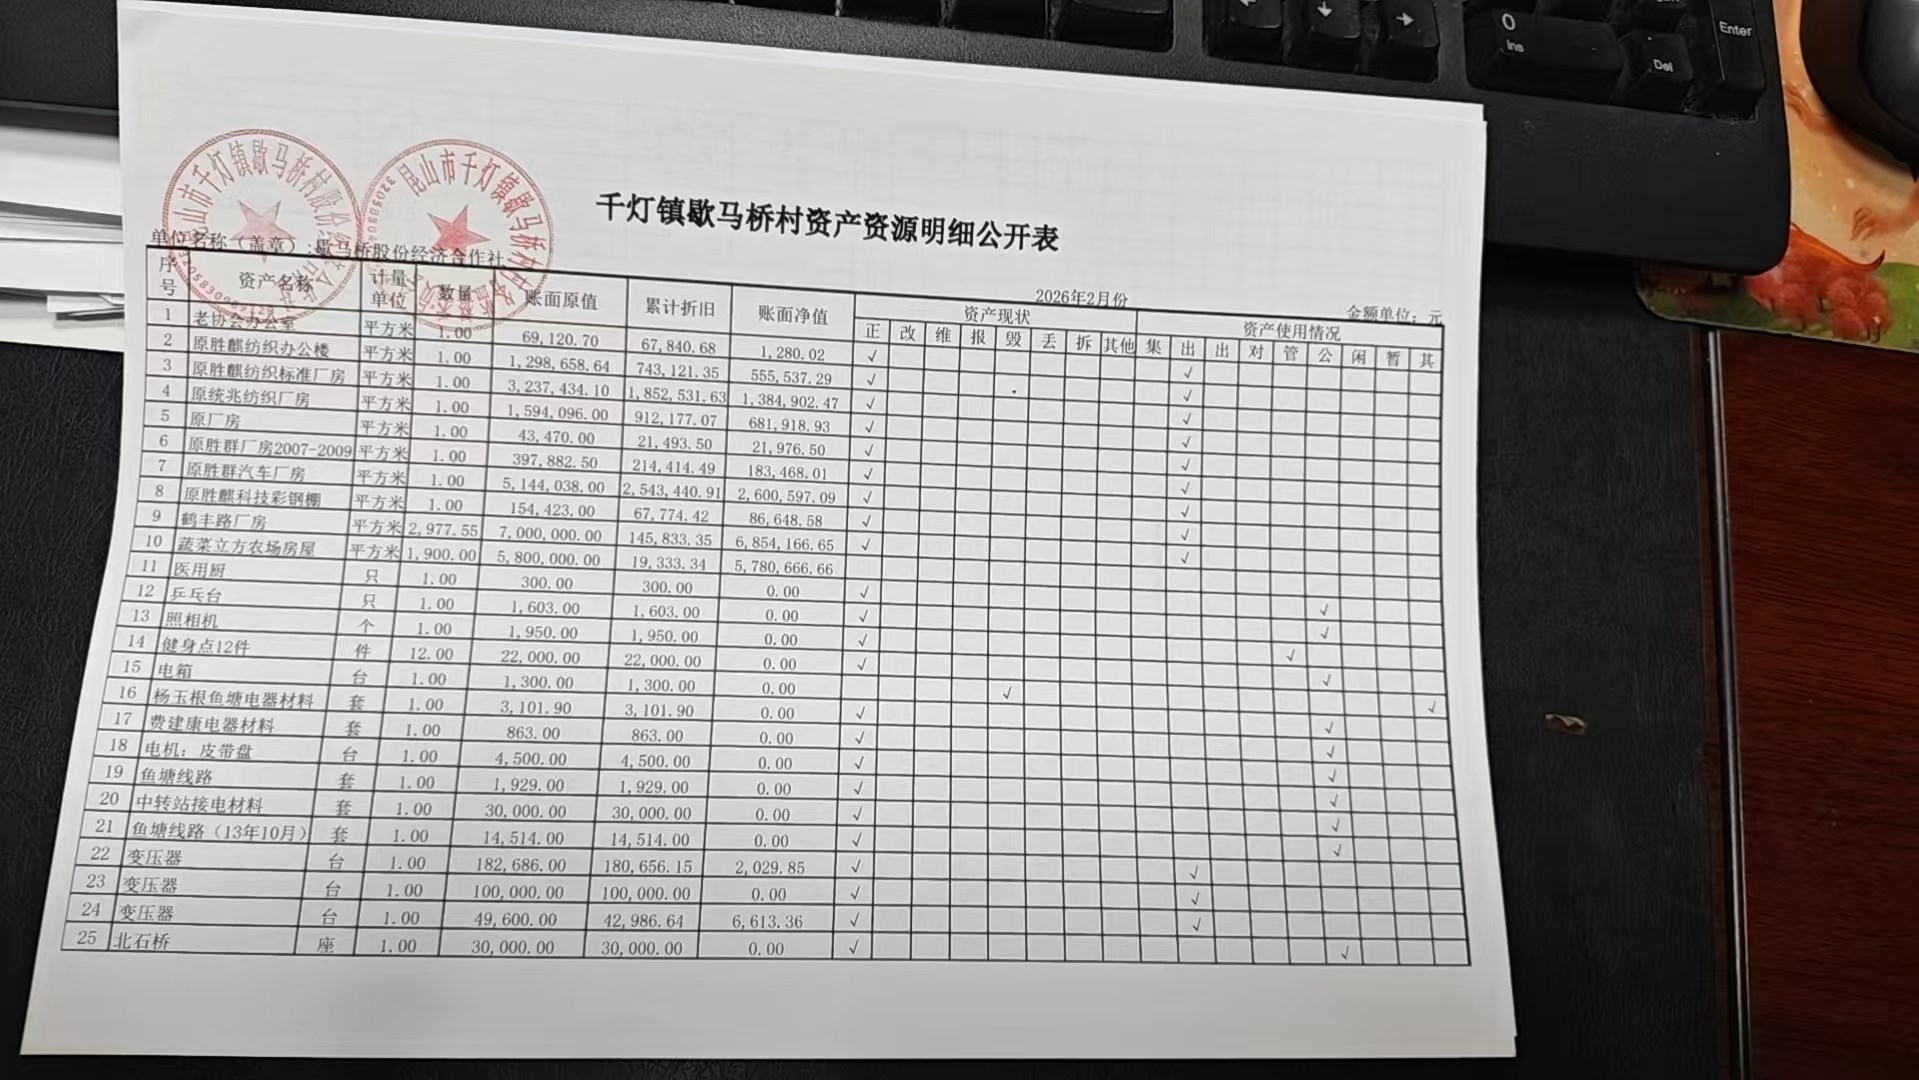 Enter
0
Ins
Del
昆山市千灯镇歇马桥村股份经济合作社
昆山市千灯镇歇马桥村村民委员会
千灯镇歇马桥村资产资源明细公开表
单位名称(盖章):歇马桥股份经济合作社 2026年2月份 金额单位:元
序号 资产名称 计量单位 数量 账面原值 累计折旧 账面净值 资产现状 资产使用情况
正 改 维 报 毁 丢 拆 其他 集 出 出 对 管 公 闲 暂 其
1 老协会办公室 平方米 1.00 69,120.70 67,840.68 1,280.02 √ √
2 原胜麒纺织办公楼 平方米 1.00 1,298,658.64 743,121.35 555,537.29 √ √
3 原胜麒纺织标准厂房 平方米 1.00 3,237,434.10 1,852,531.63 1,384,902.47 √ √
4 原统兆纺织厂房 平方米 1.00 1,594,096.00 912,177.07 681,918.93 √ √
5 原厂房 平方米 1.00 43,470.00 21,493.50 21,976.50 √ √
6 原胜群厂房2007-2009 平方米 1.00 397,882.50 214,414.49 183,468.01 √ √
7 原胜群汽车厂房 平方米 1.00 5,144,038.00 2,543,440.91 2,600,597.09 √ √
8 原胜麒科技彩钢棚 平方米 1.00 154,423.00 67,774.42 86,648.58 √ √
9 鹤丰路厂房 平方米 2,977.55 7,000,000.00 145,833.35 6,854,166.65 √ √
10 蔬菜立方农场房屋 平方米 1,900.00 5,800,000.00 19,333.34 5,780,666.66
11 医用厨 只 1.00 300.00 300.00 0.00 √ √
12 乒乓台 只 1.00 1,603.00 1,603.00 0.00 √ √
13 照相机 个 1.00 1,950.00 1,950.00 0.00 √ √
14 健身点12件 件 12.00 22,000.00 22,000.00 0.00 √ √
15 电箱 台 1.00 1,300.00 1,300.00 0.00 √ √
16 杨玉根鱼塘电器材料 套 1.00 3,101.90 3,101.90 0.00 √ √
17 费建康电器材料 套 1.00 863.00 863.00 0.00 √ √
18 电机;皮带盘 台 1.00 4,500.00 4,500.00 0.00 √ √
19 鱼塘线路 套 1.00 1,929.00 1,929.00 0.00 √ √
20 中转站接电材料 套 1.00 30,000.00 30,000.00 0.00 √ √
21 鱼塘线路(13年10月) 套 1.00 14,514.00 14,514.00 0.00 √ √
22 变压器 台 1.00 182,686.00 180,656.15 2,029.85 √ √
23 变压器 台 1.00 100,000.00 100,000.00 0.00 √ √
24 变压器 台 1.00 49,600.00 42,986.64 6,613.36 √ √
25 北石桥 座 1.00 30,000.00 30,000.00 0.00 √ √